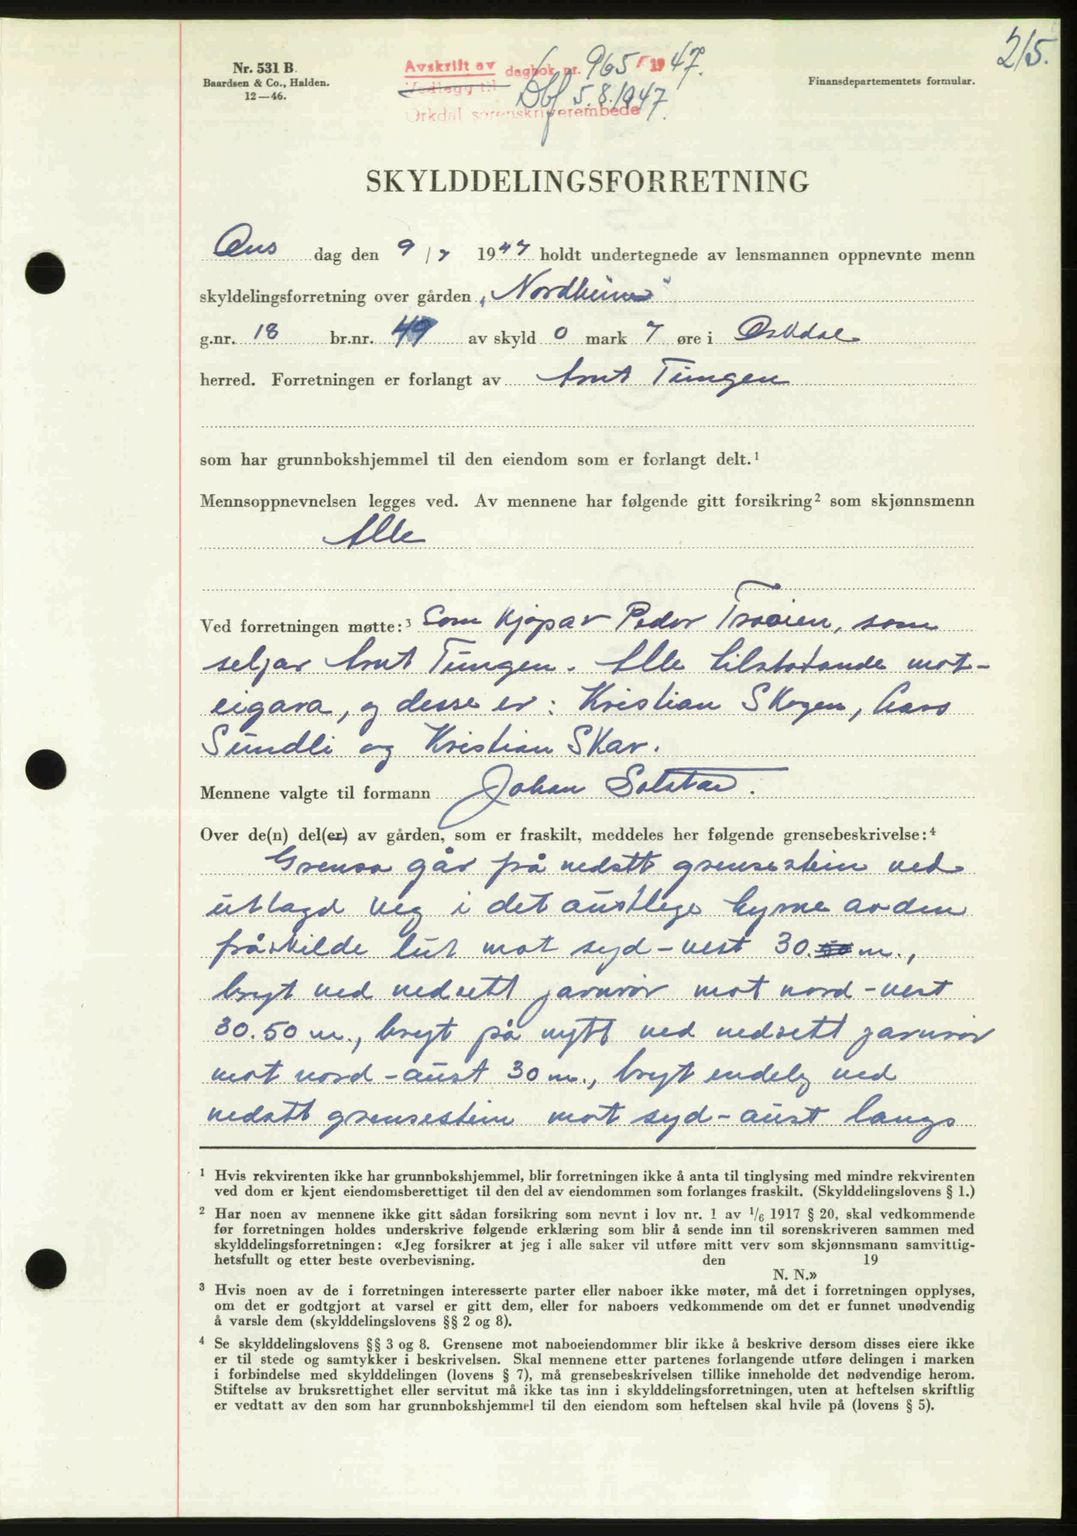 215.
Nr. 531 B.
Baardsen & Co., Halden.
12—46.
Avskrift av dagbok nr. 965 1947.
Vedlegg til Dbf 5.8.1947.
Orkdal sorenskriverembede
Finansdepartementets formular.
SKYLDDELINGSFORRETNING
Ons dag den 9/7 1947 holdt undertegnede av lensmannen oppnevnte menn
skyldelingsforretning over gården „Nordheim"
g.nr. 18 br.nr. 49 av skyld 0 mark 7 øre i Orkdal
herred. Forretningen er forlangt av Arnt Tungen
som har grunnbokshjemmel til den eiendom som er forlangt delt.¹
Mennsoppnevnelsen legges ved. Av mennene har følgende gitt forsikring² som skjønnsmenn
Alle
Ved forretningen møtte:³ Som kjøpar Peder Trøien, som
seljar Arnt Tungen. Alle tilstøtande mot-
eigara, og desse er: Kristian Skogen, Lars
Sundli og Kristian Skar.
Mennene valgte til formann Johan Solstad.
Over de(n) del(er) av gården, som er fraskilt, meddeles her følgende grensebeskrivelse:⁴
Grensa går frå nedsatt grensestein ved
utlagd veg i det austlege hyrne av den
fråskilde lut mot syd-vest 30. m.,
bryt ved nedsett jarnrør mot nord-vest
30.50 m., bryt på nytt ved nedsett jarnrør
mot nord-aust 30 m., bryt endeleg ved
nedsatt grensestein mot syd-aust langs
¹ Hvis rekvirenten ikke har grunnbokshjemmel, blir forretningen ikke å anta til tinglysing med mindre rekvirenten
ved dom er kjent eiendomsberettiget til den del av eiendommen som forlanges fraskilt. (Skylddelingslovens § 1.)
² Har noen av mennene ikke gitt sådan forsikring som nevnt i lov nr. 1 av 1/6 1917 § 20, skal vedkommende
før forretningen holdes underskrive følgende erklæring som blir å sende inn til sorenskriveren sammen med
skylddelingsforretningen: «Jeg forsikrer at jeg i alle saker vil utføre mitt verv som skjønnsmann samvittig-
hetsfullt og etter beste overbevisning. den 19
N. N.»
³ Hvis noen av de i forretningen interesserte parter eller naboer ikke møter, må det i forretningen opplyses,
om det er godtgjort at varsel er gitt dem, eller for naboers vedkommende om det er funnet unødvendig
å varsle dem (skylddelingslovens §§ 2 og 8).
⁴ Se skylddelingslovens §§ 3 og 8. Grensene mot naboeiendommer blir ikke å beskrive dersom disses eiere ikke
er til stede og samtykker i beskrivelsen. Skal mennene etter partenes forlangende utføre delingen i marken
i forbindelse med skylddelingen (lovens § 7), må grensebeskrivelsen tillike inneholde det nødvendige herom.
Stiftelse av bruksrettighet eller servitut må ikke tas inn i skylddelingsforretningen, uten at heftelsen skriftlig
er vedtatt av den som har grunnbokshjemmel til den eiendom som heftelsen skal hvile på (lovens § 5).